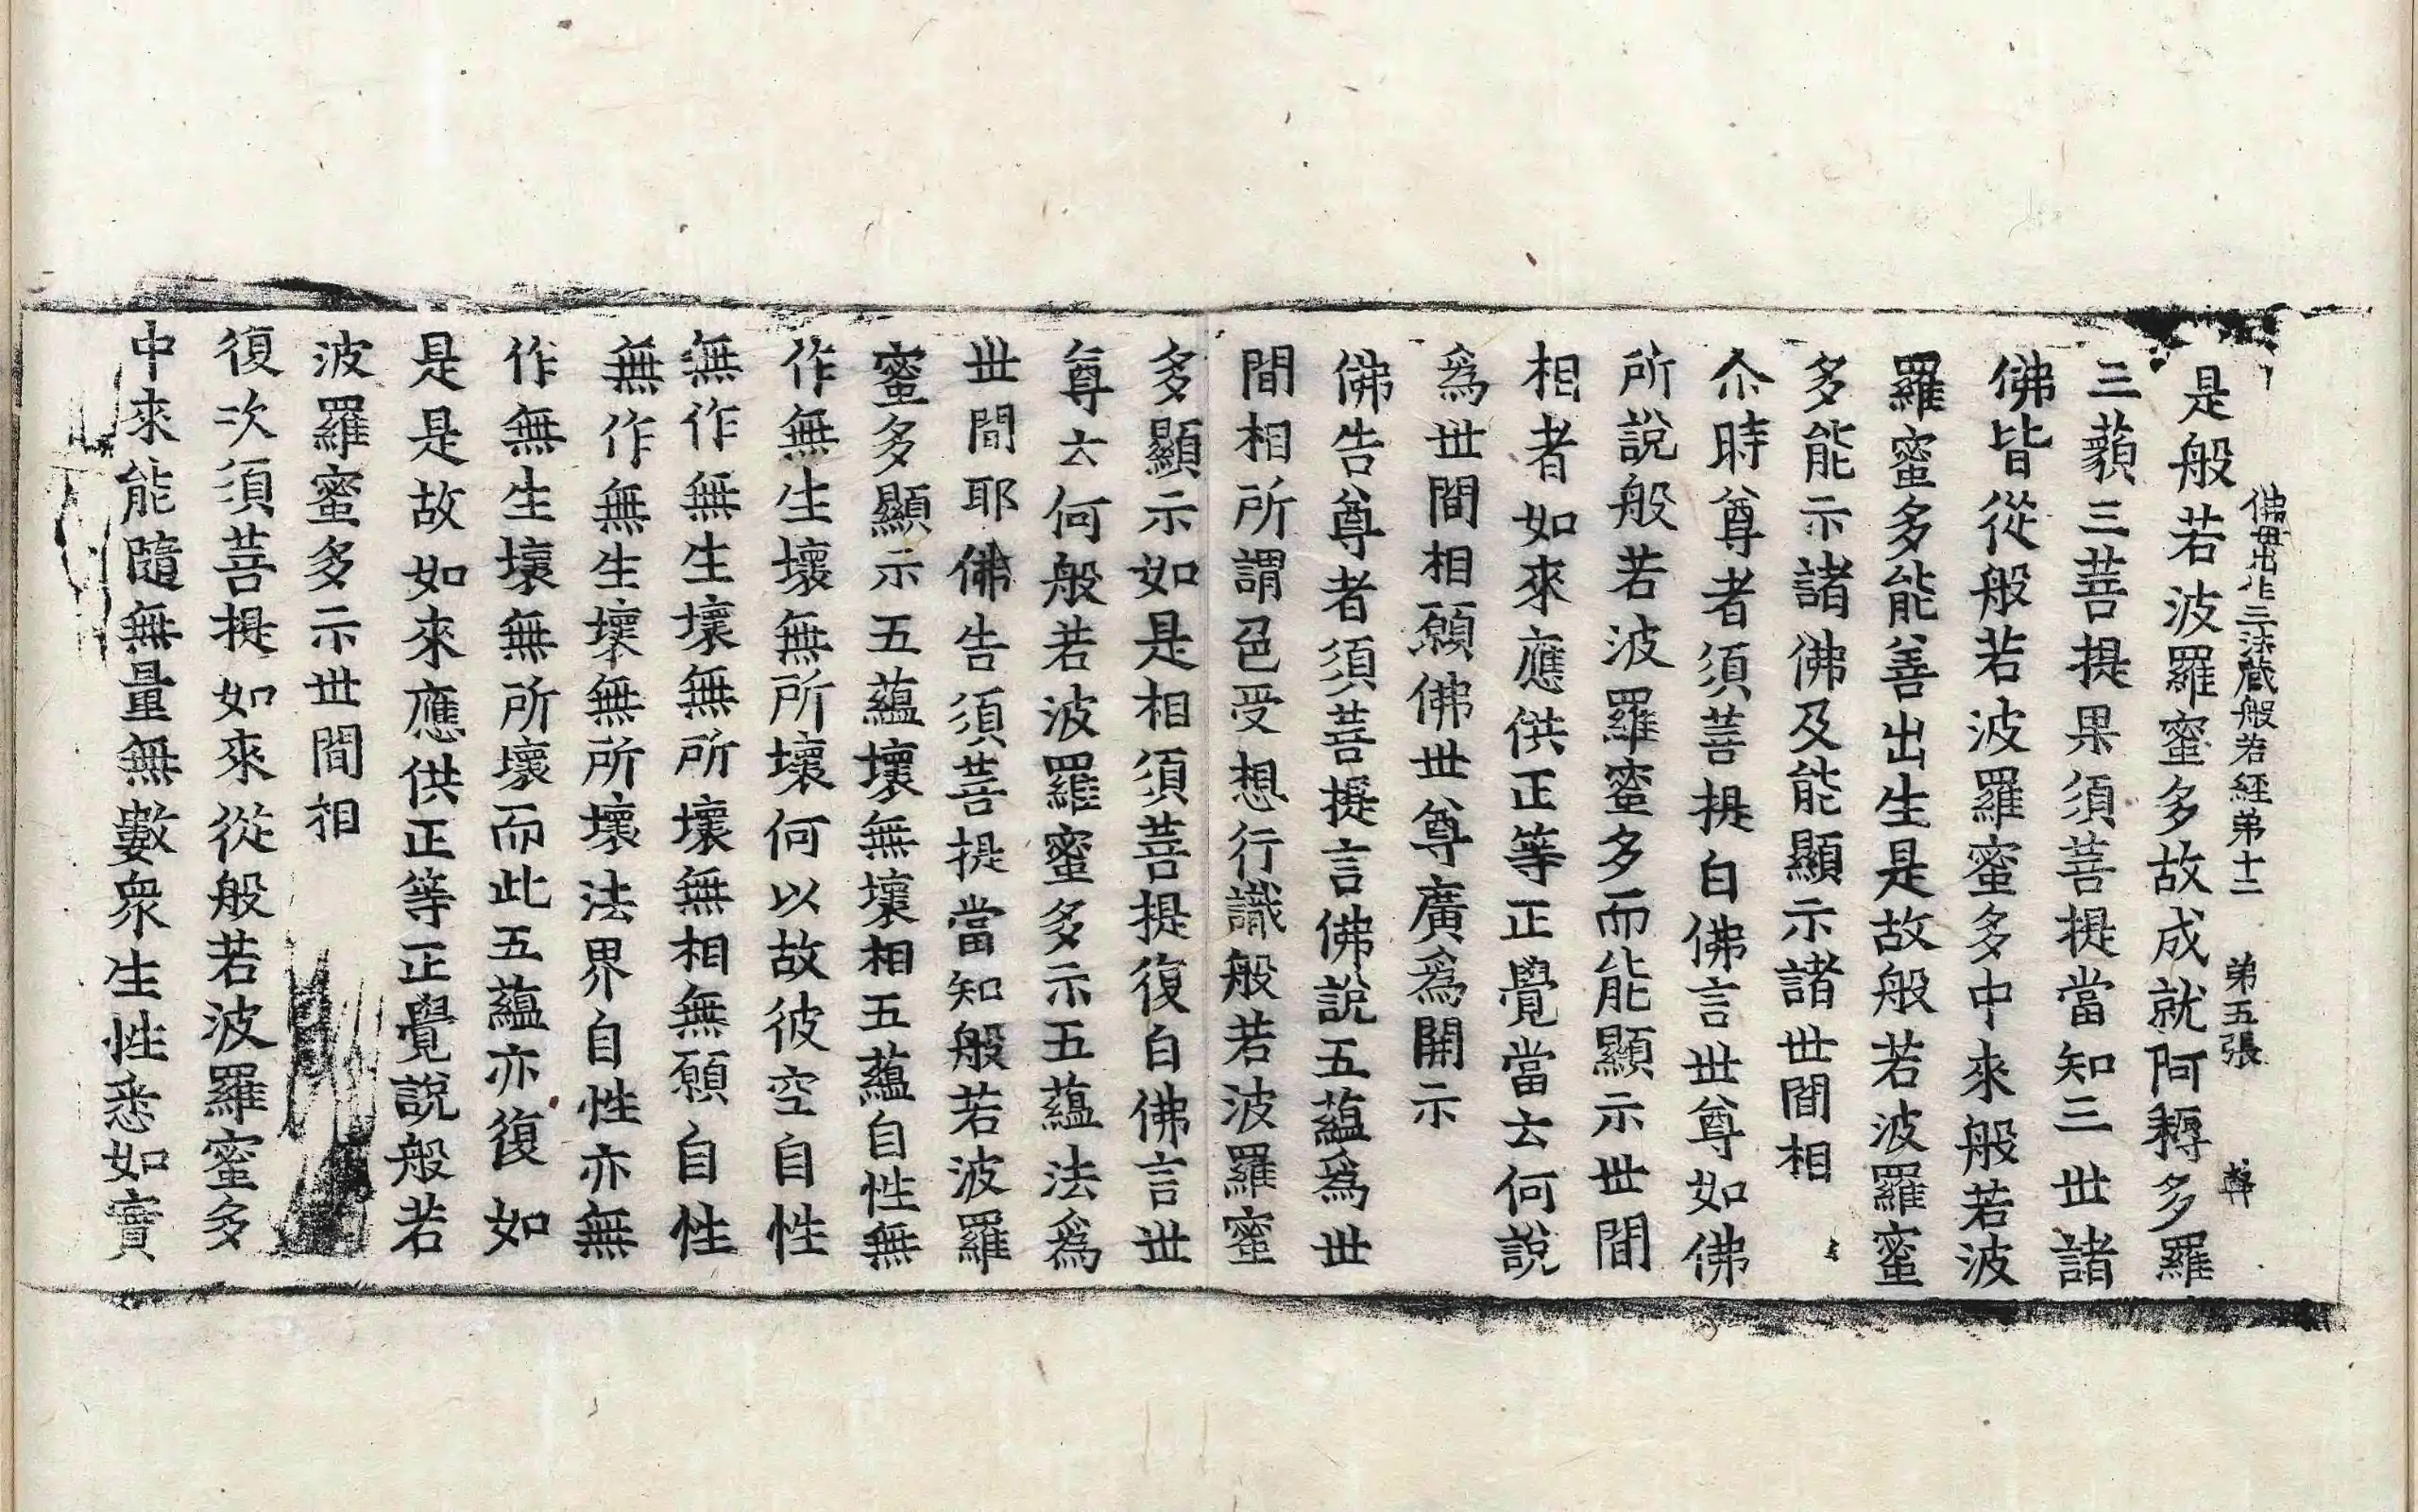 佛母出生三法藏般若經弟十二 弟五張 尊
是般若波羅蜜多故成就阿耨多羅
三藐三菩提果須菩提當知三世諸
佛皆從般若波羅蜜多中來般若波
羅蜜多能善出生是故般若波羅蜜
多能示諸佛及能顯示諸世間相
尒時尊者須菩提白佛言世尊如佛
所說般若波羅蜜多而能顯示世間
相者如來應供正等正覺當云何說
爲世間相願佛世尊廣爲開示
佛告尊者須菩提言佛說五蘊爲世
間相所謂色受想行識般若波羅蜜
多顯示如是相須菩提復白佛言世
尊云何般若波羅蜜多示五蘊法爲
世間耶佛告須菩提當知般若波羅
蜜多顯示五蘊壞無壞相五蘊自性無
作無生壞無所壞何以故彼空自性
無作無生壞無所壞無相無願自性
無作無生壞無所壞法界自性亦無
作無生壞無所壞而此五蘊亦復如
是是故如來應供正等正覺說般若
波羅蜜多示世間相
復次須菩提如來從般若波羅蜜多
中來能隨無量無數衆生性悉如實